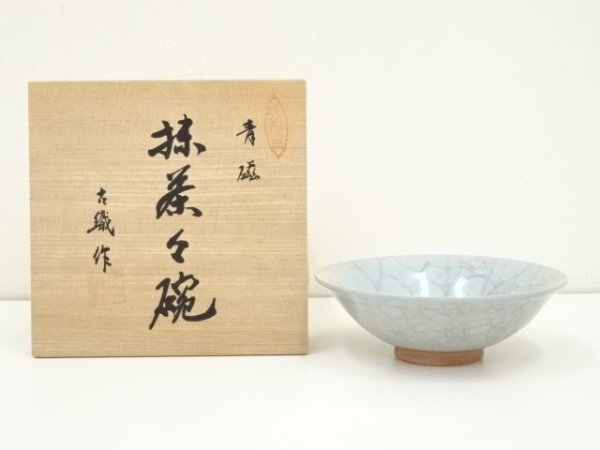 青磁
抹茶々碗
古織作